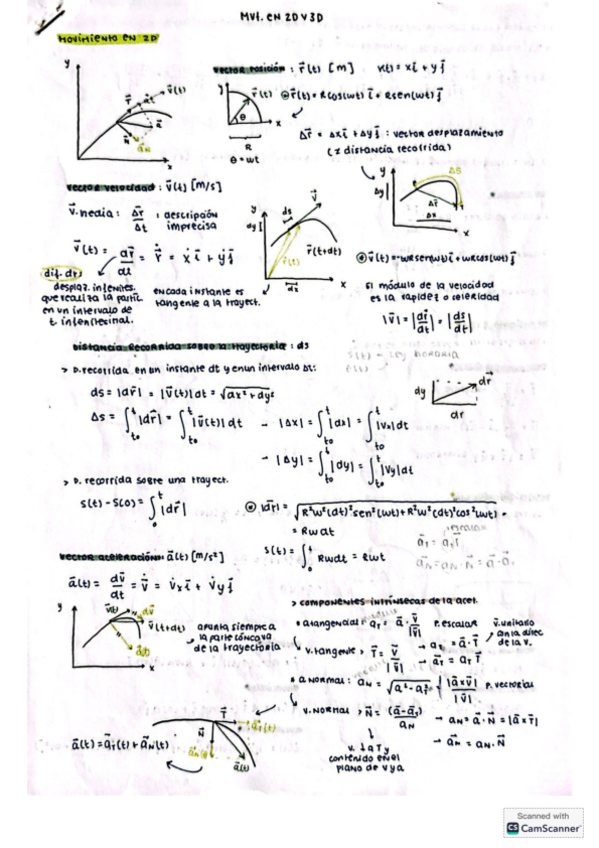 MVI. EN 2D Y 3D
MOVIMIENTO EN 2D
VECTOR POSICIÓN : r⃗(t) [m]
r(t) = xi⃗ + yj⃗
r⃗(t) = Rcos(wt) i⃗ + Rsen(wt) j⃗
θ = wt
Δr⃗ = Δxi⃗ + Δyj⃗ : vector desplazamiento
(≠ distancia recorrida)
VECTOR VELOCIDAD : v⃗(t) [m/s]
v⃗. media : Δr⃗/Δt : descripción imprecisa
v⃗(t) = dr⃗/dt = ṙ⃗ = ẋi⃗ + ẏj⃗
dif. dr⃗
desplaz. infinites.
que realiza la partíc.
en un intervalo de
t infinitecinal.
en cada instante es
tangente a la trayect.
v⃗(t) = -wRsen(wt)i⃗ + wRcos(wt)j⃗
El módulo de la velocidad
es la rapidez o celeridad
|v⃗| = |dr⃗/dt| = |ds/dt|
DISTANCIA RECORRIDA SOBRE LA TRAYECTORIA : ds
> D. recorrida en un instante dt y en un intervalo Δt:
ds = |dr⃗| = |v⃗(t)|dt = √dx²+dy²
Δs = ∫ₜ₀ᵗ |dr⃗| = ∫ₜ₀ᵗ |v⃗(t)| dt
→ |Δx| = ∫ₜ₀ᵗ |dx| = ∫ₜ₀ᵗ |Vx|dt
→ |Δy| = ∫ₜ₀ᵗ |dy| = ∫ₜ₀ᵗ |Vy|dt
> D. recorrida sobre una trayect.
s(t) - s(0) = ∫₀ᵗ |dr⃗|
|dr⃗| = √R²w²(dt)²sen²(wt)+R²w²(dt)²cos²(wt) =
= Rwdt
s(t) = ∫₀ᵗ Rwdt = Rwt
VECTOR ACELERACIÓN: a⃗(t) [m/s²]
a⃗(t) = dv⃗/dt = v̇⃗ = V̇xi⃗ + V̇yj⃗
apunta siempre a
la parte cóncava
de la trayectoria
a⃗(t) = a⃗ₜ(t) + a⃗ₙ(t)
> COMPONENTES INTRÍNSECAS de la acel.
a tangencial : aₜ = a⃗ · v⃗/|v⃗| P. escalar
v⃗. unitario
en la direc
de la v.
v. tangente > T⃗ = v⃗/|v⃗|
→ aₜ = a⃗ · T⃗
→ a⃗ₜ = aₜ T⃗
a NORMAL : aₙ = √a²-aₜ² = |a⃗×v⃗|/|v⃗| P. vectorial
v. NORMAL > N⃗ = (a⃗-a⃗ₜ)/aₙ
→ aₙ = a⃗ · N⃗ = |a⃗×T⃗|
→ a⃗ₙ = aₙ · N⃗
v. ⊥ a T y
contenido en el
plano de v y a
Scanned with
CS CamScanner